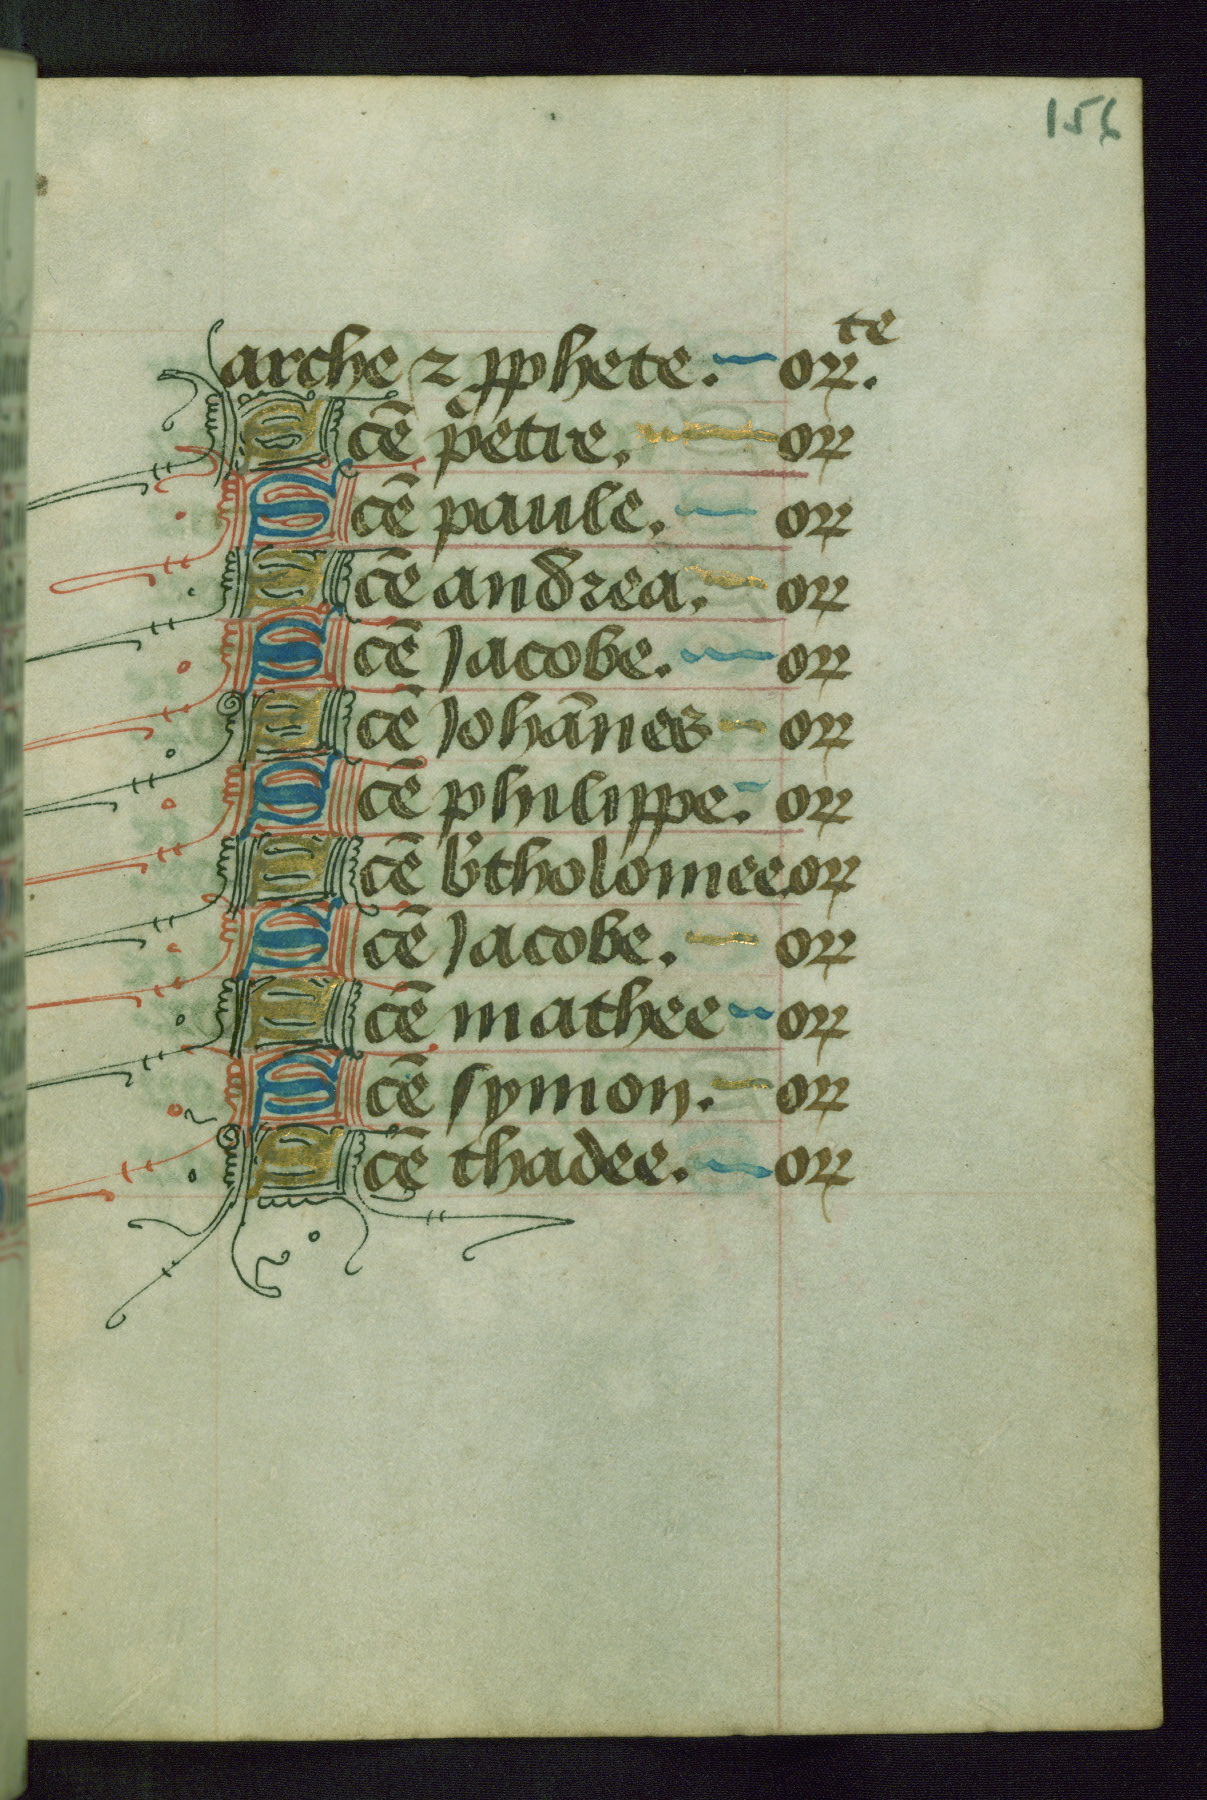 156
arche ⁊ ꝓphete. orꝝ.te
Scē petre. orꝝ
Scē paule. orꝝ
Scē andrea. orꝝ
Scē Jacobe. orꝝ
Scē Johānes orꝝ
Scē philippe. orꝝ
Scē btholomee orꝝ
Scē Jacobe. orꝝ
Scē mathee orꝝ
Scē symon. orꝝ
Scē thadee. orꝝ